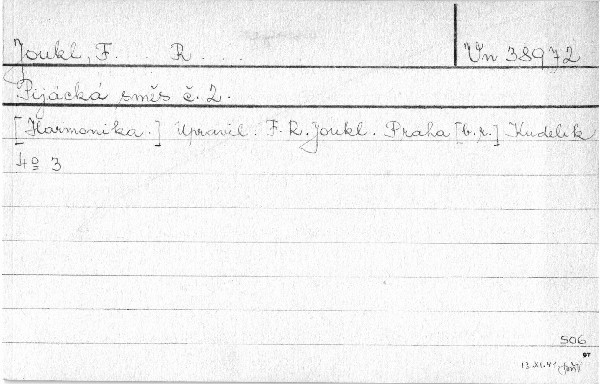 Joukl, F. R. Vn 38972
Pijácká směs č. 2.
[Harmonika.] Upravil. F. R. Joukl. Praha [b.r.] Kudelík
4º 3
506
97
13.XI.41